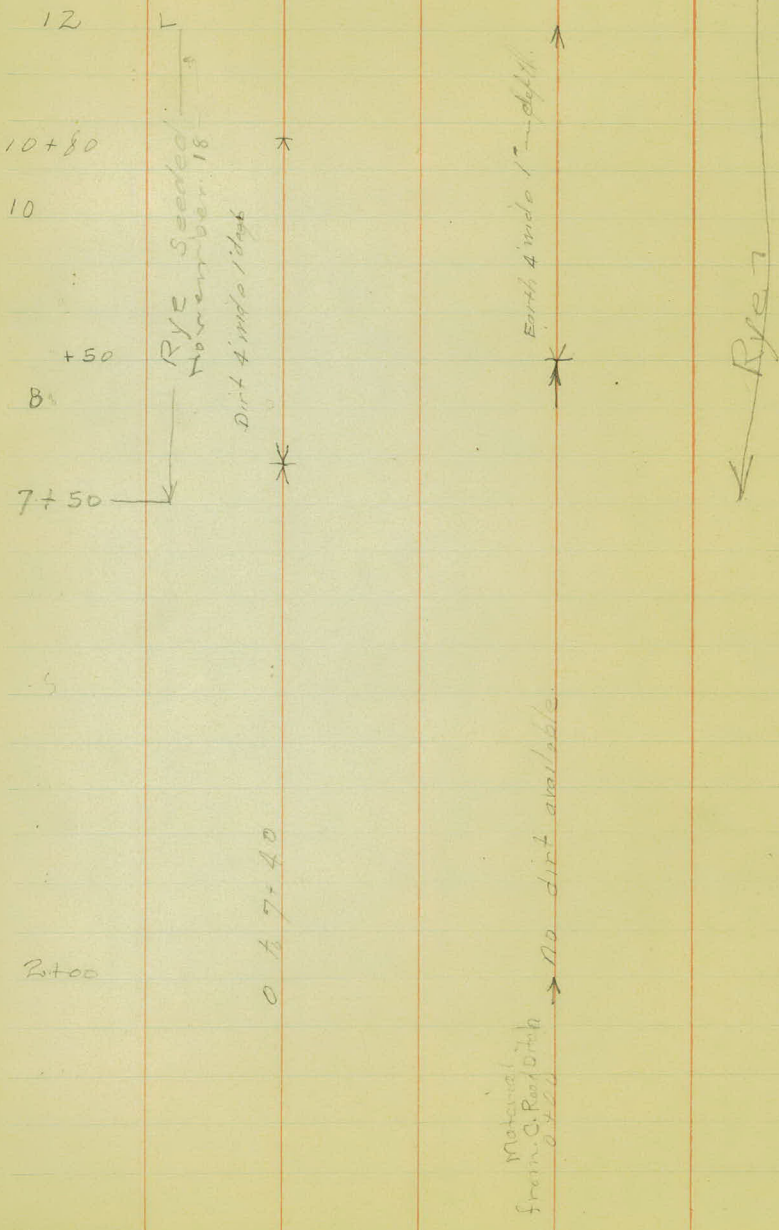 12
10+80
10
+50
8
7+50
2+00
Rye Seeded
November 18
Dirt 4' wide 1' deep
0 to 7+40
Earth 4' wide 1' depth
No dirt available
Material
from C. Road Ditch
Rye